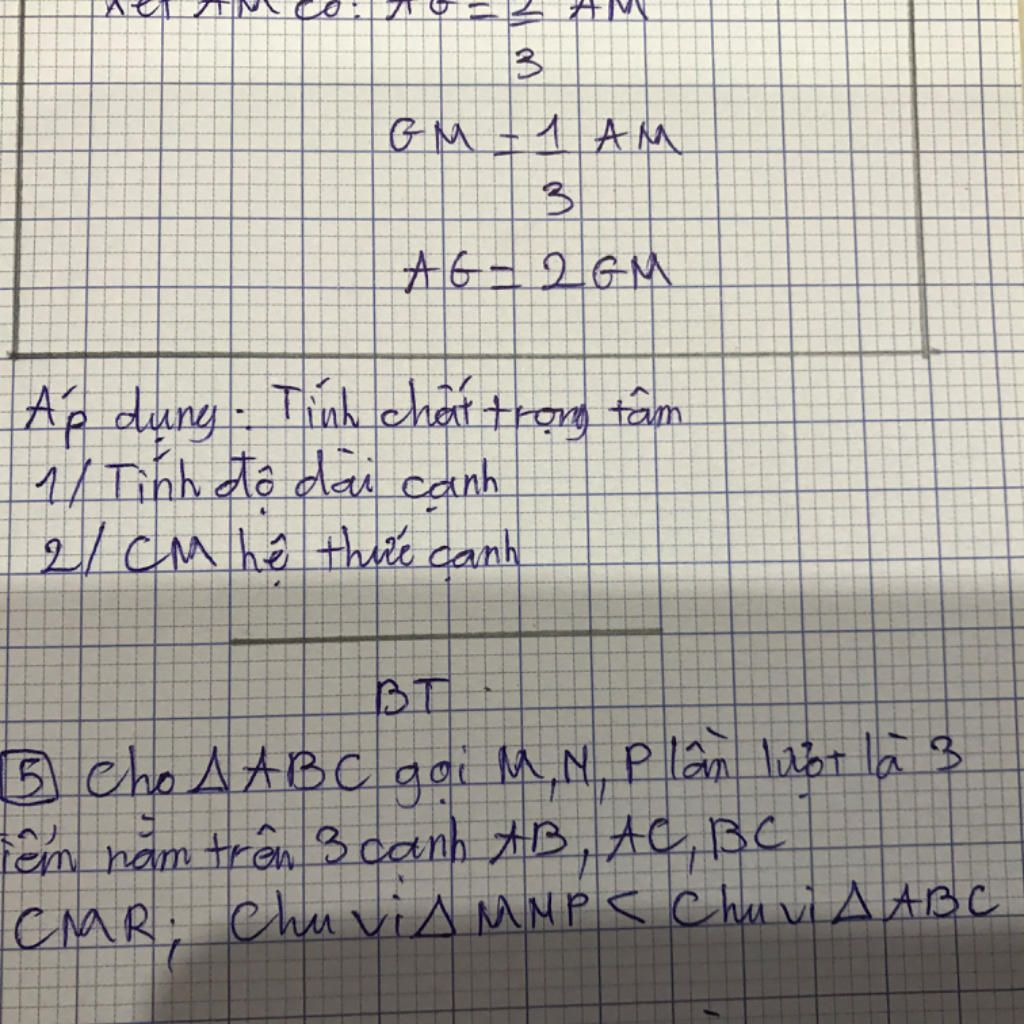 Xét AM có: AG = 2/3 AM
GM = 1/3 AM
AG = 2 GM
Áp dụng: Tính chất trọng tâm
1/ Tính độ dài cạnh
2/ CM hệ thức cạnh
BT
5 Cho Δ ABC gọi M, N, P lần lượt là 3
iểm nằm trên 3 cạnh AB, AC, BC
CMR; Chu vi Δ MNP < Chu vi Δ ABC